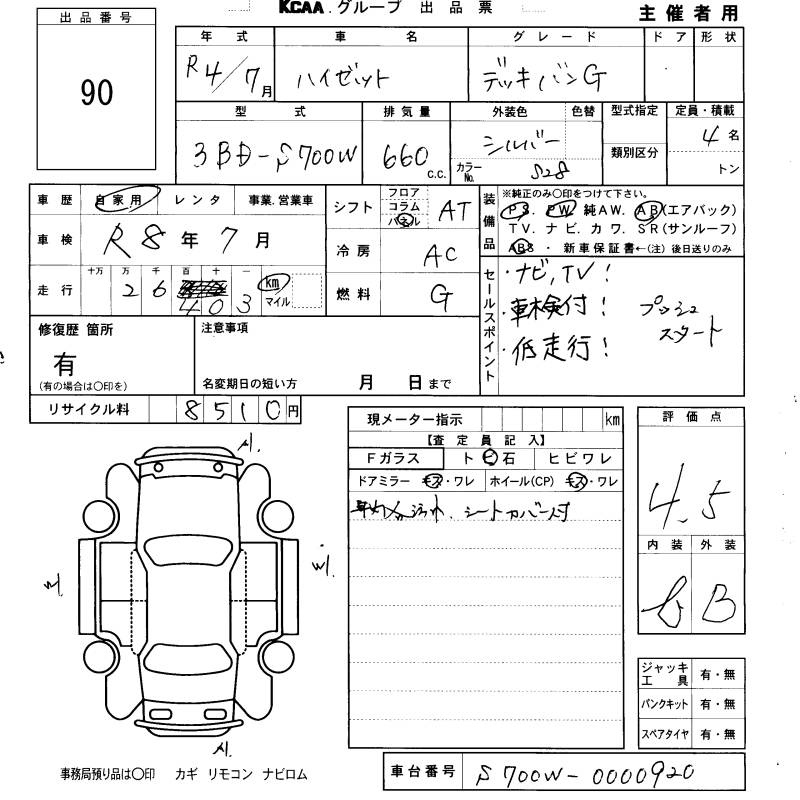 KCAA.グループ 出品票
主催者用
出品番号
90
年式 車名 グレード ドア 形状
R4/7月 ハイゼット デッキバンG
型式 排気量 外装色 色替 型式指定 定員・積載
3BD-S700W 660 c.c. シルバー 4名
カラーNo. S28 類別区分 トン
車歴 自家用 レンタ 事業.営業車
車検 R8年7月
走行 十万 万 千 百 十 一
2 6 4 0 3 km マイル
シフト フロア コラム パネル AT
冷房 AC
燃料 G
装備品 ※純正のみ○印をつけて下さい。
PS. PW. 純AW. AB(エアバック)
TV. ナビ. カワ. SR(サンルーフ)
ABS・新車保証書←(注)後日送りのみ
セールスポイント
・ナビ,TV!
・車検付! プッシュ
・低走行! スタート
修復歴 箇所
有
(有の場合は○印を)
注意事項
名変期日の短い方 月 日まで
リサイクル料 8510円
現メーター指示 km
【査定員記入】
Fガラス トビ石 ヒビワレ
ドアミラー キズ・ワレ ホイール(CP) キズ・ワレ
シートカバー付
評価点
4.5
内装 外装
B
ジャッキ工具 有・無
パンクキット 有・無
スペアタイヤ 有・無
事務局預り品は○印 カギ リモコン ナビロム
車台番号 S700W-0000920